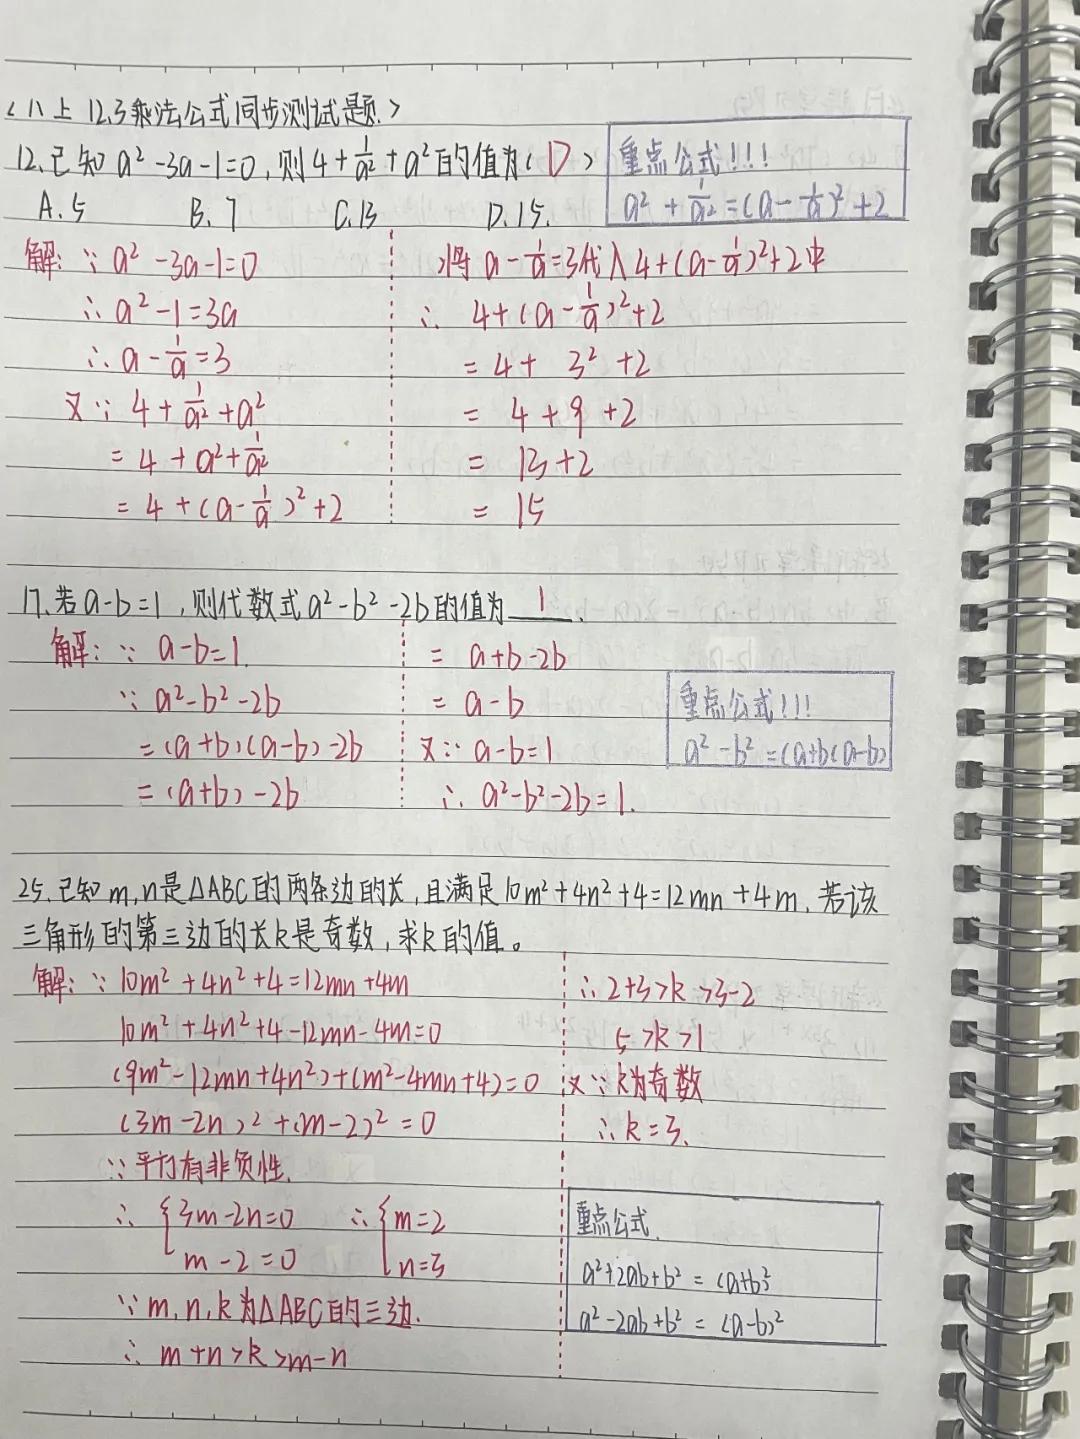 <八上 12.3乘法公式同步测试题>
12.已知a²-3a-1=0,则4+1/a²+a²的值为(D)
A.5 B.7 C.13 D.15.
重点公式!!!
a²+1/a²=(a-1/a)²+2
解:∵a²-3a-1=0
∴a²-1=3a
∴a-1/a=3
又∵4+1/a²+a²
=4+a²+1/a²
=4+(a-1/a)²+2
将a-1/a=3代入4+(a-1/a)²+2中
∴4+(a-1/a)²+2
=4+3²+2
=4+9+2
=13+2
=15
17.若a-b=1,则代数式a²-b²-2b的值为 1 .
解:∵a-b=1.
∵a²-b²-2b
=(a+b)(a-b)-2b
=(a+b)-2b
=a+b-2b
=a-b
又∵a-b=1
∴a²-b²-2b=1.
重点公式!!!
a²-b²=(a+b(a-b)
25.已知m,n是△ABC的两条边的长,且满足10m²+4n²+4=12mn+4m.若该
三角形的第三边的长k是奇数,求k的值。
解:∵10m²+4n²+4=12mn+4m
10m²+4n²+4-12mn-4m=0
(9m²-12mn+4n²)+(m²-4mn+4)=0
(3m-2n)²+(m-2)²=0
∵平方有非负性.
∴{3m-2n=0 ∴{m=2
m-2=0 n=3
∵m,n,k为△ABC的三边.
∴m+n>k>m-n
∴2+3>k>3-2
5>k>1
又∵k为奇数
∴k=3.
重点公式.
a²+2ab+b²=(a+b)²
a²-2ab+b²=(a-b)²